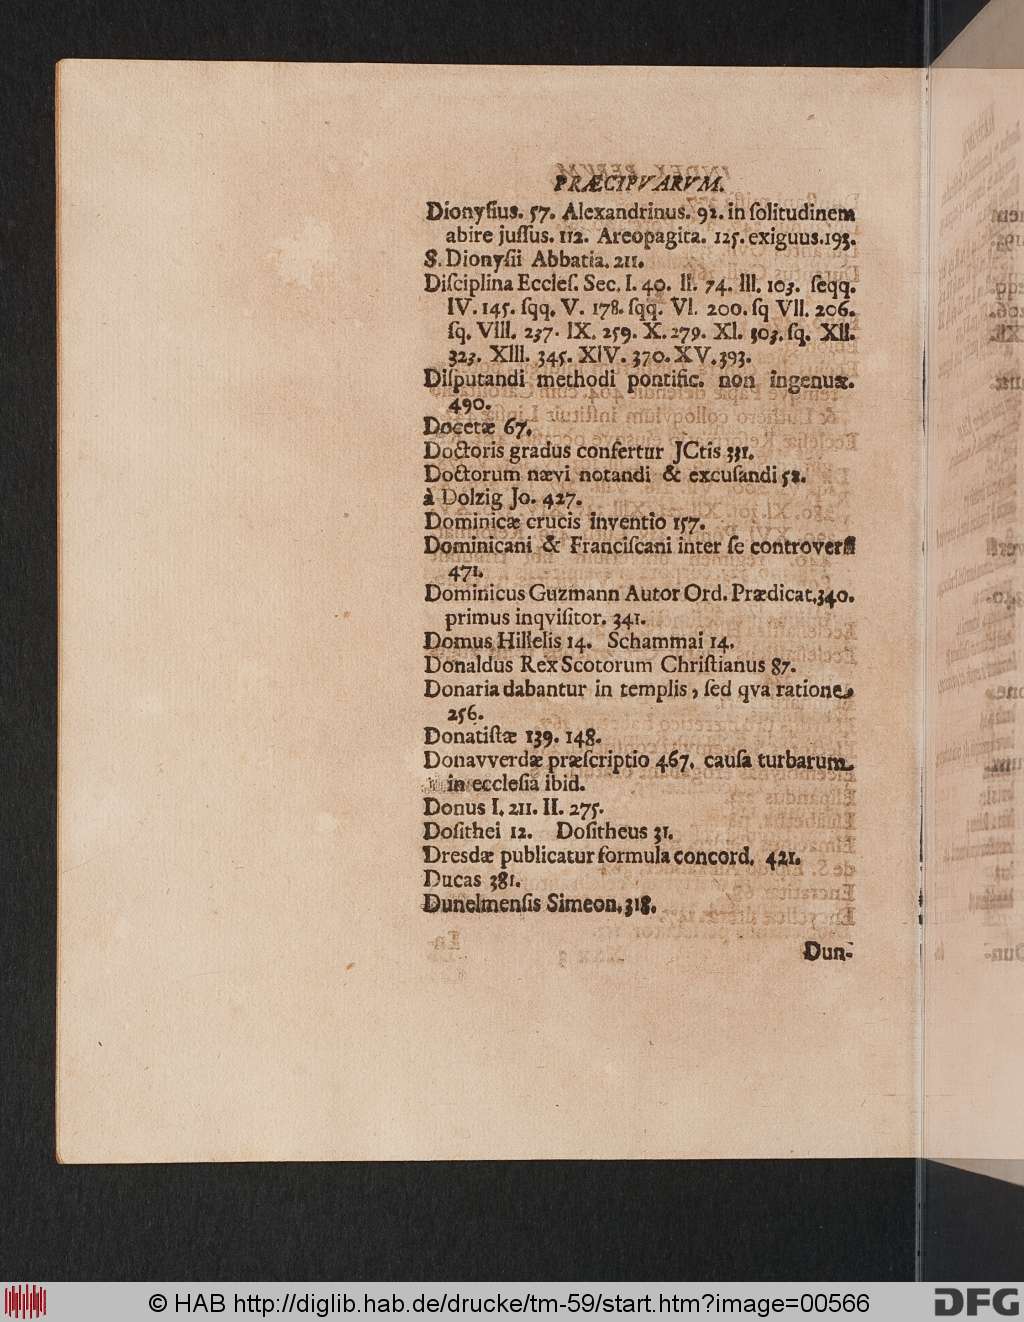 PRÆCIPVARVM.
Dionyſius. 57. Alexandrinus. 92. in ſolitudinem
abire juſſus. 112. Areopagita. 125. exiguus. 193.
S. Dionyſii Abbatia. 211.
Diſciplina Eccleſ. Sec. I. 40. II. 74. III. 103. ſeqq.
IV. 145. ſqq. V. 178. ſqq. VI. 200. ſq VII. 206.
ſq. VIII. 237. IX. 259. X. 279. XI. 303. ſq. XII.
323. XIII. 345. XIV. 370. XV. 393.
Diſputandi methodi pontific. non ingenuæ.
490.
Docetæ 67.
Doctoris gradus confertur JCtis 331.
Doctorum nævi notandi & excuſandi 58.
à Dolzig Jo. 427.
Dominicæ crucis inventio 157.
Dominicani & Franciſcani inter ſe controverſi
471.
Dominicus Guzmann Autor Ord. Prædicat. 340.
primus inqviſitor. 341.
Domus Hillelis 14. Schammai 14.
Donaldus Rex Scotorum Chriſtianus 87.
Donaria dabantur in templis, ſed qva ratione
256.
Donatiſtæ 139. 148.
Donavverdæ præſcriptio 467. cauſa turbarum
in eccleſia ibid.
Donus I. 211. II. 275.
Doſithei 12. Doſitheus 31.
Dresdæ publicatur formula concord. 421.
Ducas 381.
Dunelmenſis Simeon. 318.
Dun-
© HAB http://diglib.hab.de/drucke/tm-59/start.htm?image=00566
DFG